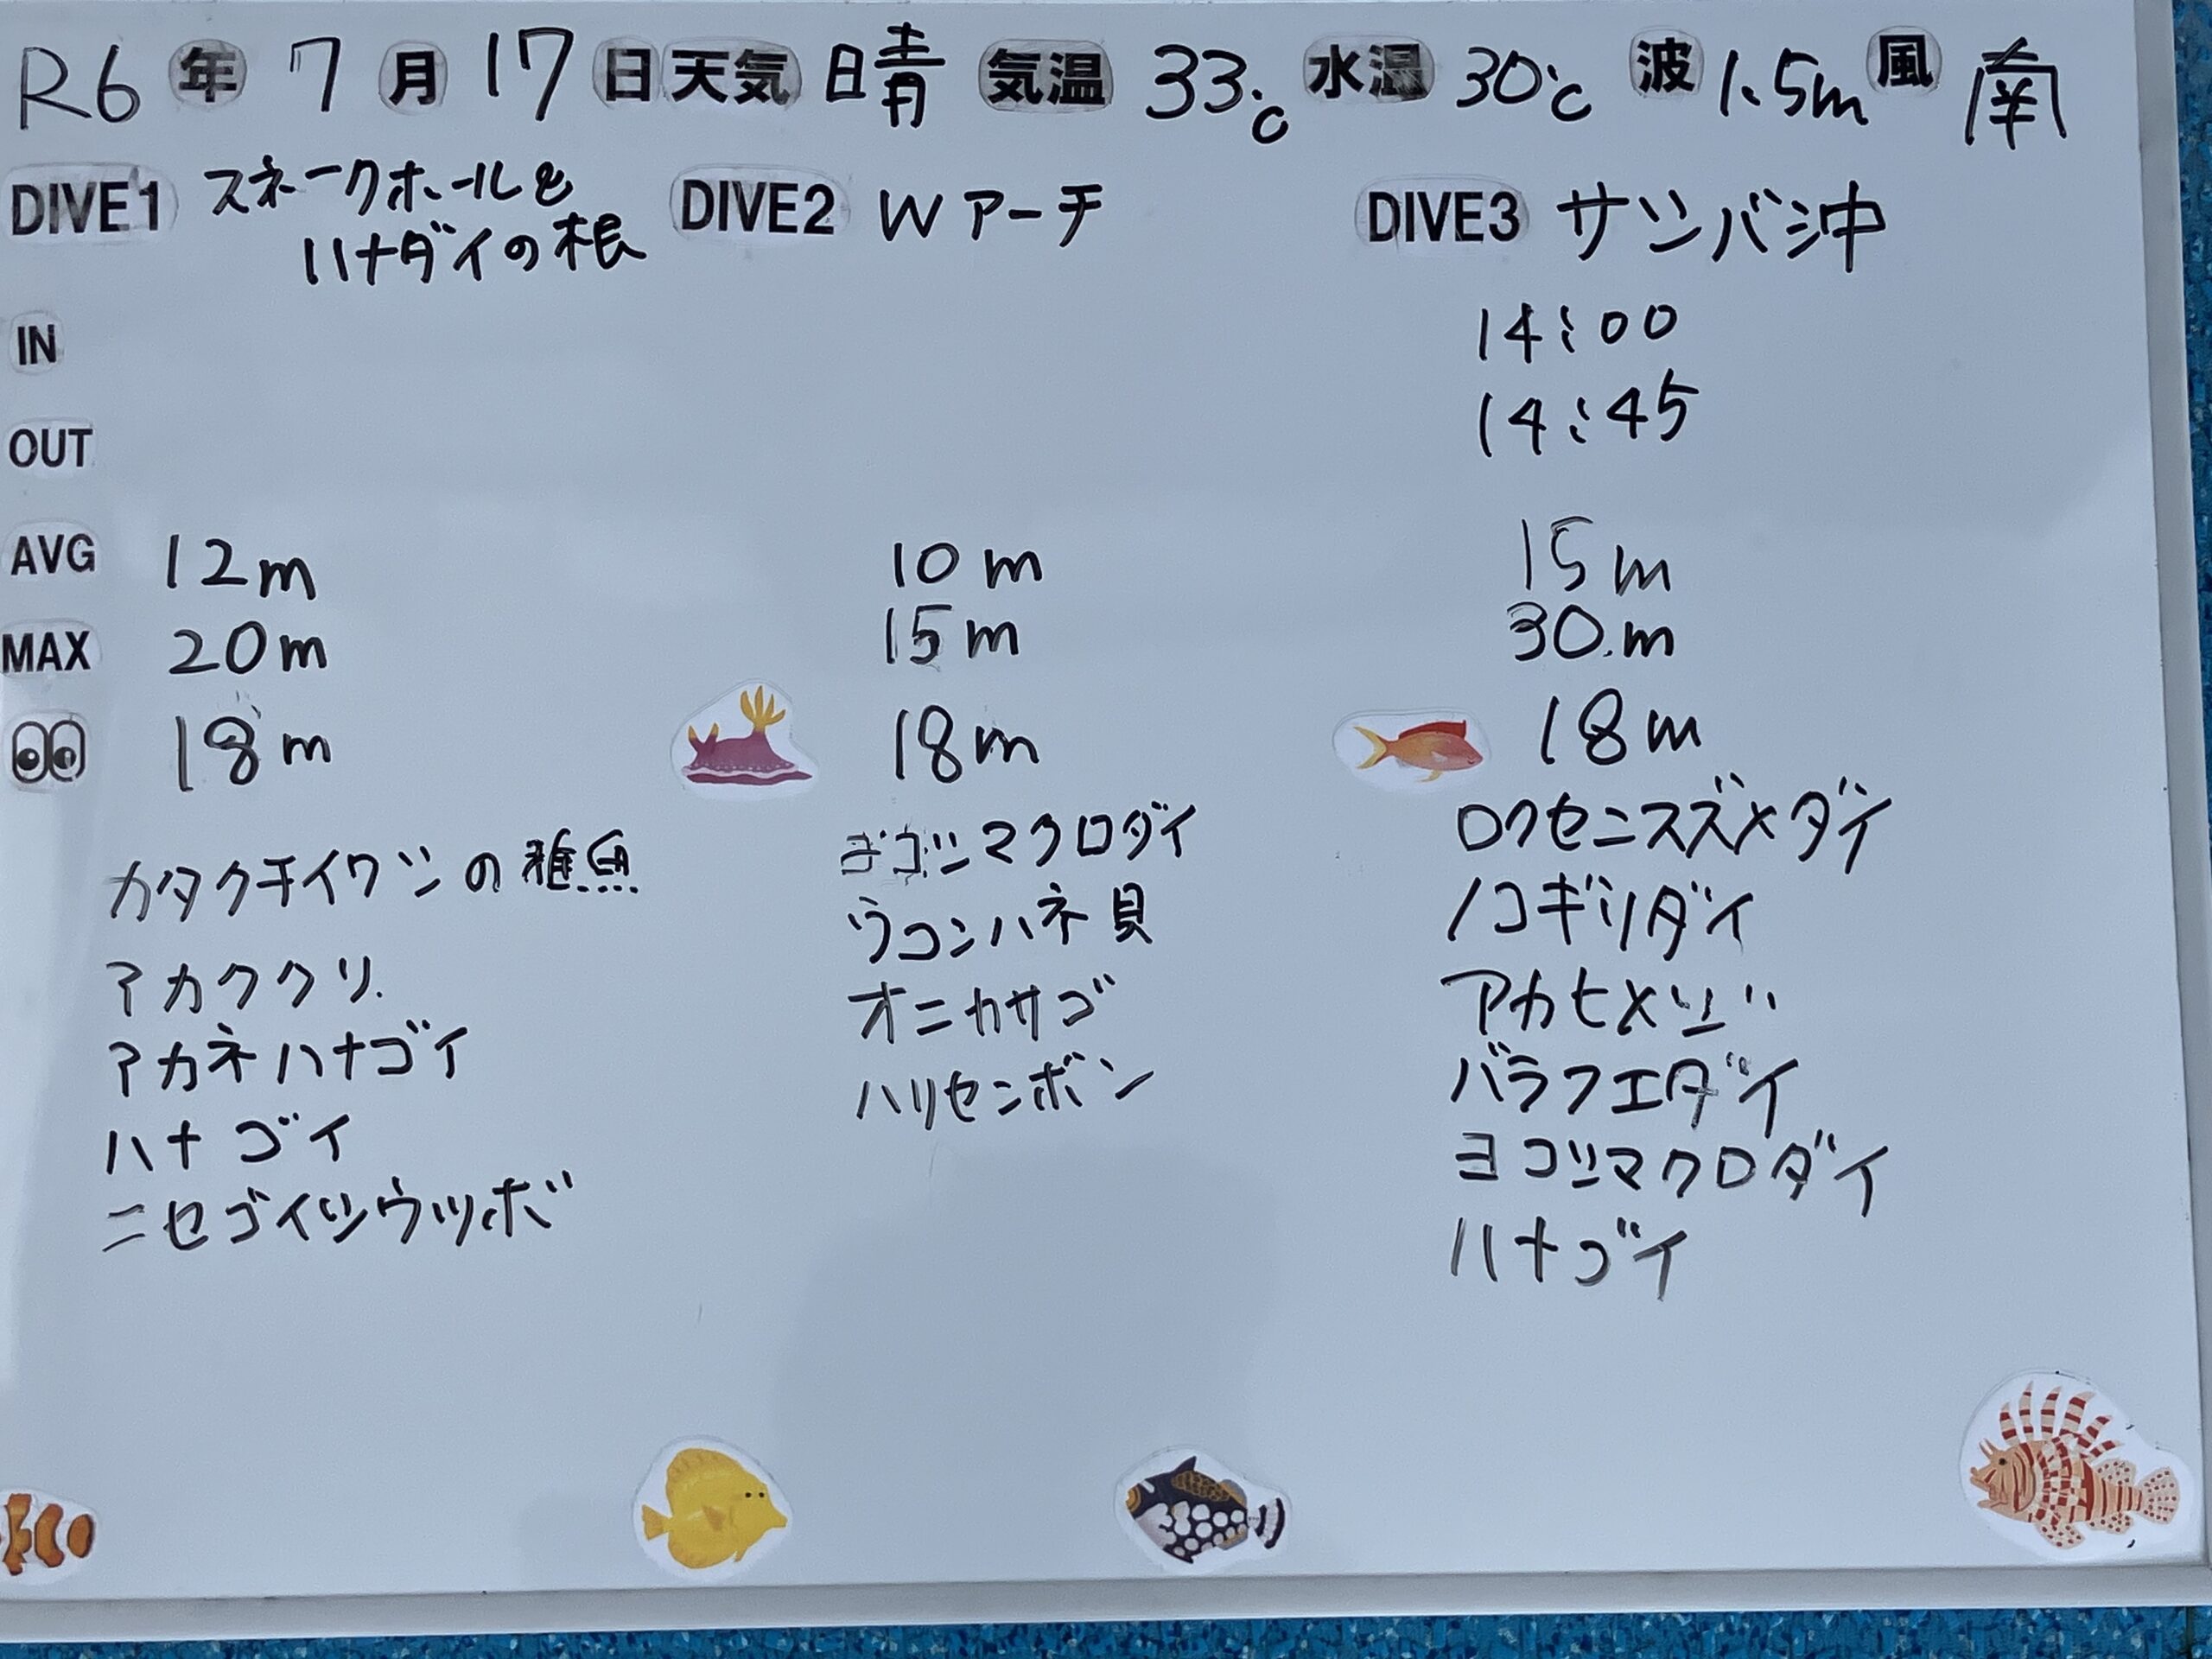 R6年 7月 17日 天気 晴 気温 33℃ 水温 30℃ 波 1.5m 風 南
DIVE1 スネークホールと
ハナダイの根
DIVE2 Wアーチ
DIVE3 サンバ沖
IN 14:00
OUT 14:45
AVG 12m 10m 15m
MAX 20m 15m 30m
18m 18m 18m
カタクチイワシの稚魚
アカククリ
アカネハナゴイ
ハナゴイ
ニセゴイシウツボ
ヨコシマクロダイ
ウコンハネ貝
オニカサゴ
ハリセンボン
ロクセンスズメダイ
ノコギリダイ
アカヒメジ
バラフエダイ
ヨコシマクロダイ
ハナゴイ